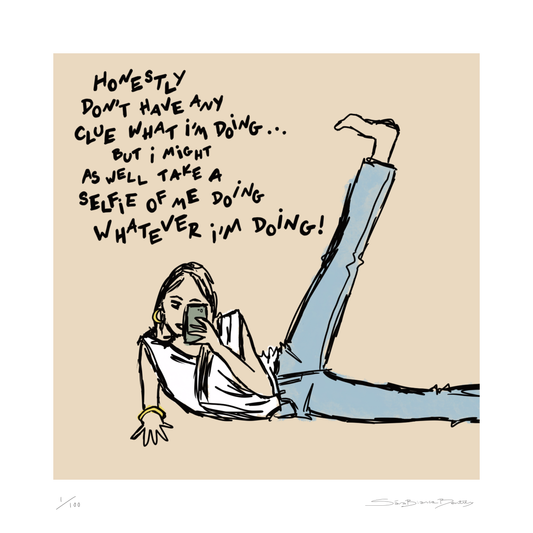 HONESTLY
DON'T HAVE ANY
CLUE WHAT i'M DOiNG...
BUT i MiGHT
AS WELL TAKE A
SELFiE OF ME DOiNG
WHATEVER i'M DOiNG!
1/100